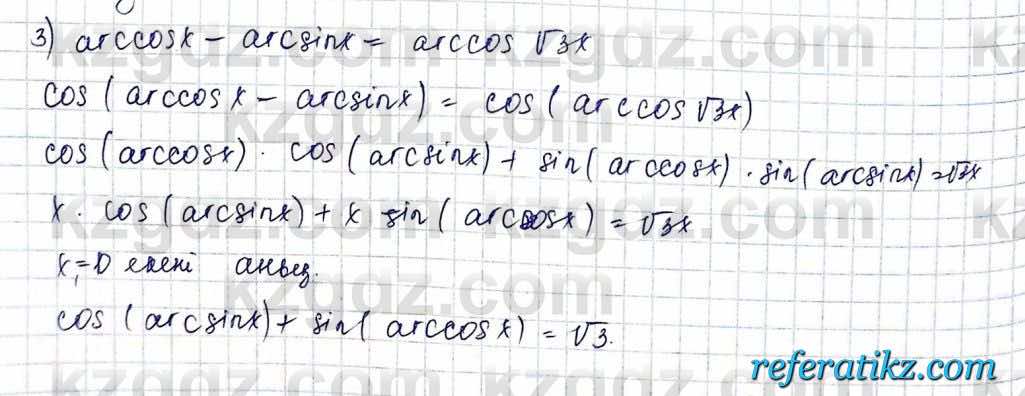 3) arccosx - arcsinx = arccos √3x
cos (arccosx - arcsinx) = cos (arccos √3x)
cos (arccosx) · cos (arcsinx) + sin (arccosx) · sin (arcsinx) = √3x
x · cos (arcsinx) + x sin (arccosx) = √3x
x₁=0 екені анық.
cos (arcsinx) + sin (arccosx) = √3.
kzgdz.com
referatikz.com